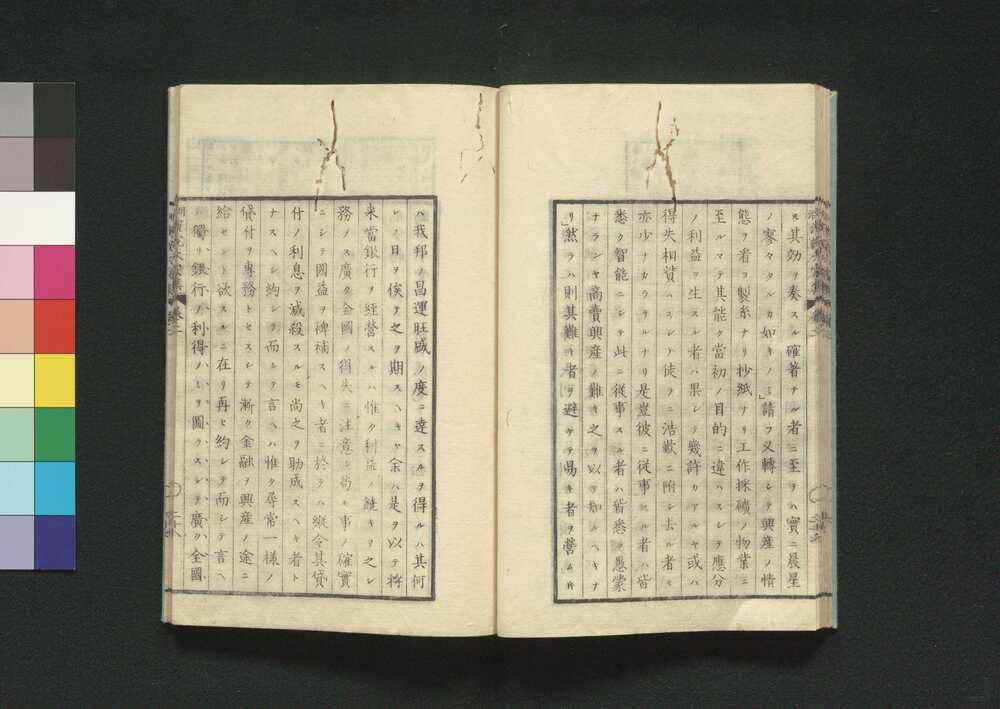 ス其効ヲ奏スル確著ナル者ニ至テハ實ニ晨星
ノ寥々タルカ如キノミ」請フ又轉シテ興産ノ情
態ヲ看ヨ製糸ナリ抄紙ナリ工作採礦ノ物業ニ
至ルマテ其能ク當初ノ目的ニ違ハスシテ應分
ノ利益ヲ生スル者ハ果シテ幾許カアルヤ或ハ
得失相貲ハスシテ徒ラニ浩歎ニ附シ去ル者モ
亦少ナカラサルナリ是豈彼ニ從事スル者ハ皆
悉ク智能ニシテ此ニ従事スル者ハ皆悉ク愚蒙
ナランヤ商賣興産ノ難キ之ヲ以テ知ルヘキナ
リ」然ラハ則其難キ者ヲ避ケテ易キ者ヲ營ム片
ハ我邦ノ昌運旺盛ノ度ニ達スルヲ得ルハ其何
レノ日ヲ俟テ之ヲ期スヘキヤ余ハ是ヲ以テ将
来當銀行ヲ経營スルハ惟タ利益ノ
務ノス廣ク全國ノ得失ニ注意シ尚モ事ノ確實
ニシテ國益ヲ裨補スヘキ者ニ於テハ縦令其貸
付ノ利息ヲ減殺スルモ尚之ヲ助成スヘキ者ト
ナスヘシ約シテ而シテ言ヘハ惟タ尋常一様ノ
貸付ヲ専務トセスシテ漸ク金融ヲ興産ノ途ニ
給セント欲スルニ在リ再ヒ約シテ而シテ言ヘ
ハ獨リ銀行ノ利得ノミヲ圖ラスシテ廣ク全國